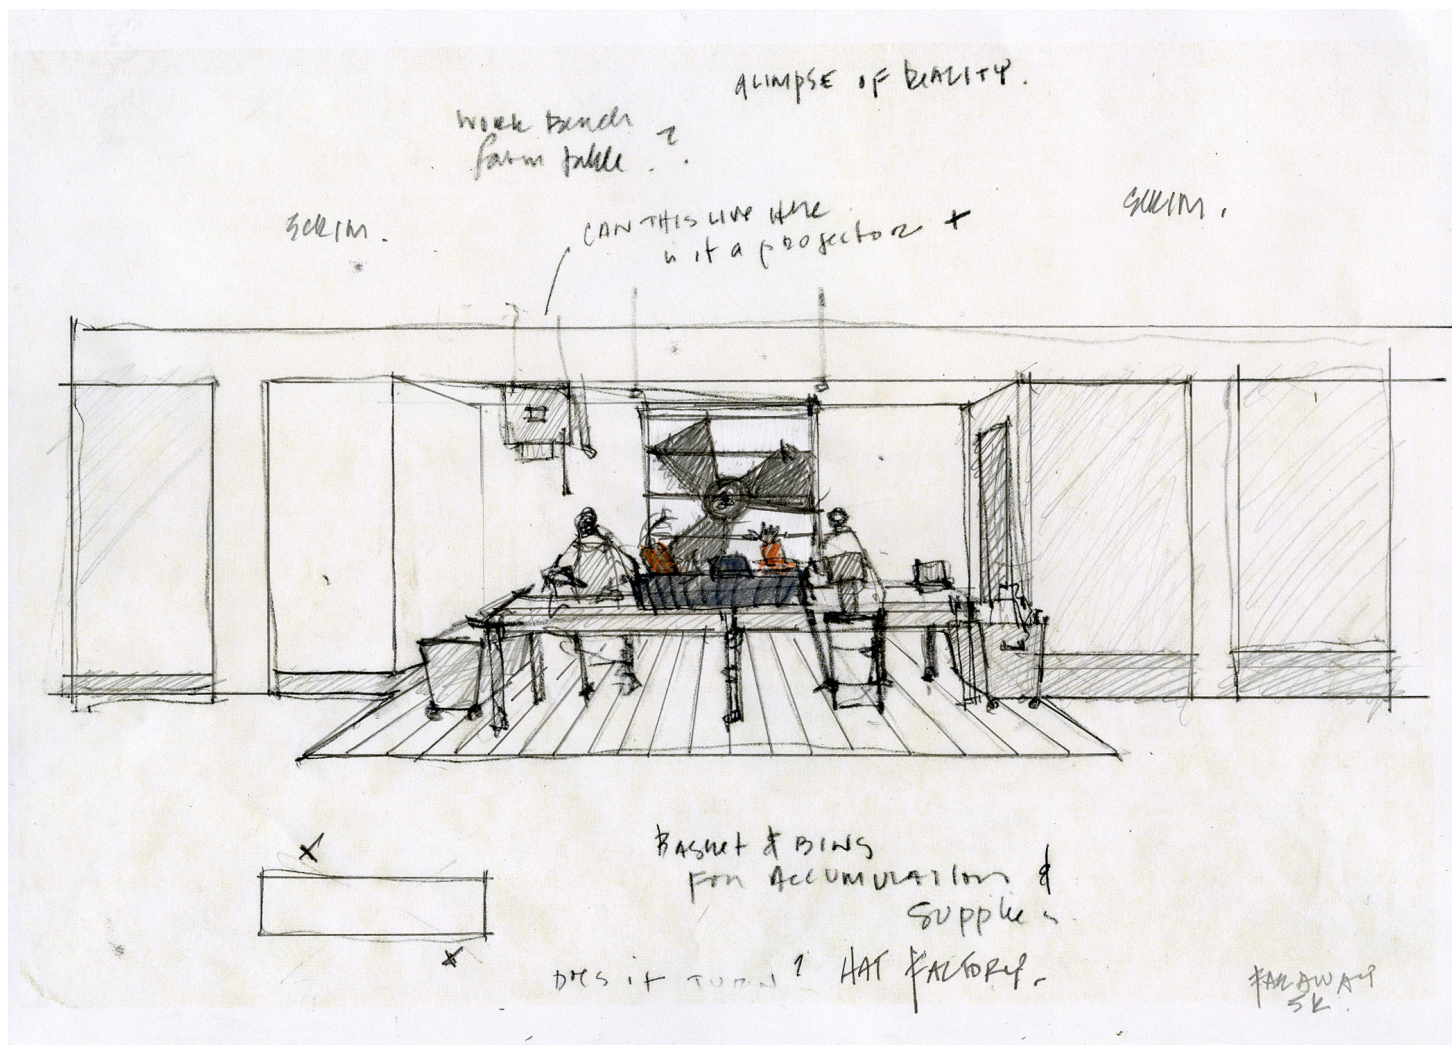 GLIMPSE OF REALITY.
Work Bench
farm table ?
SCRIM.
SCRIM.
CAN THIS LIVE Here
is it a projector +
Basket & BINS
For Accumulations &
Supplies
Does it TURN? HAT FACTORY.
FARAWAY
SK.